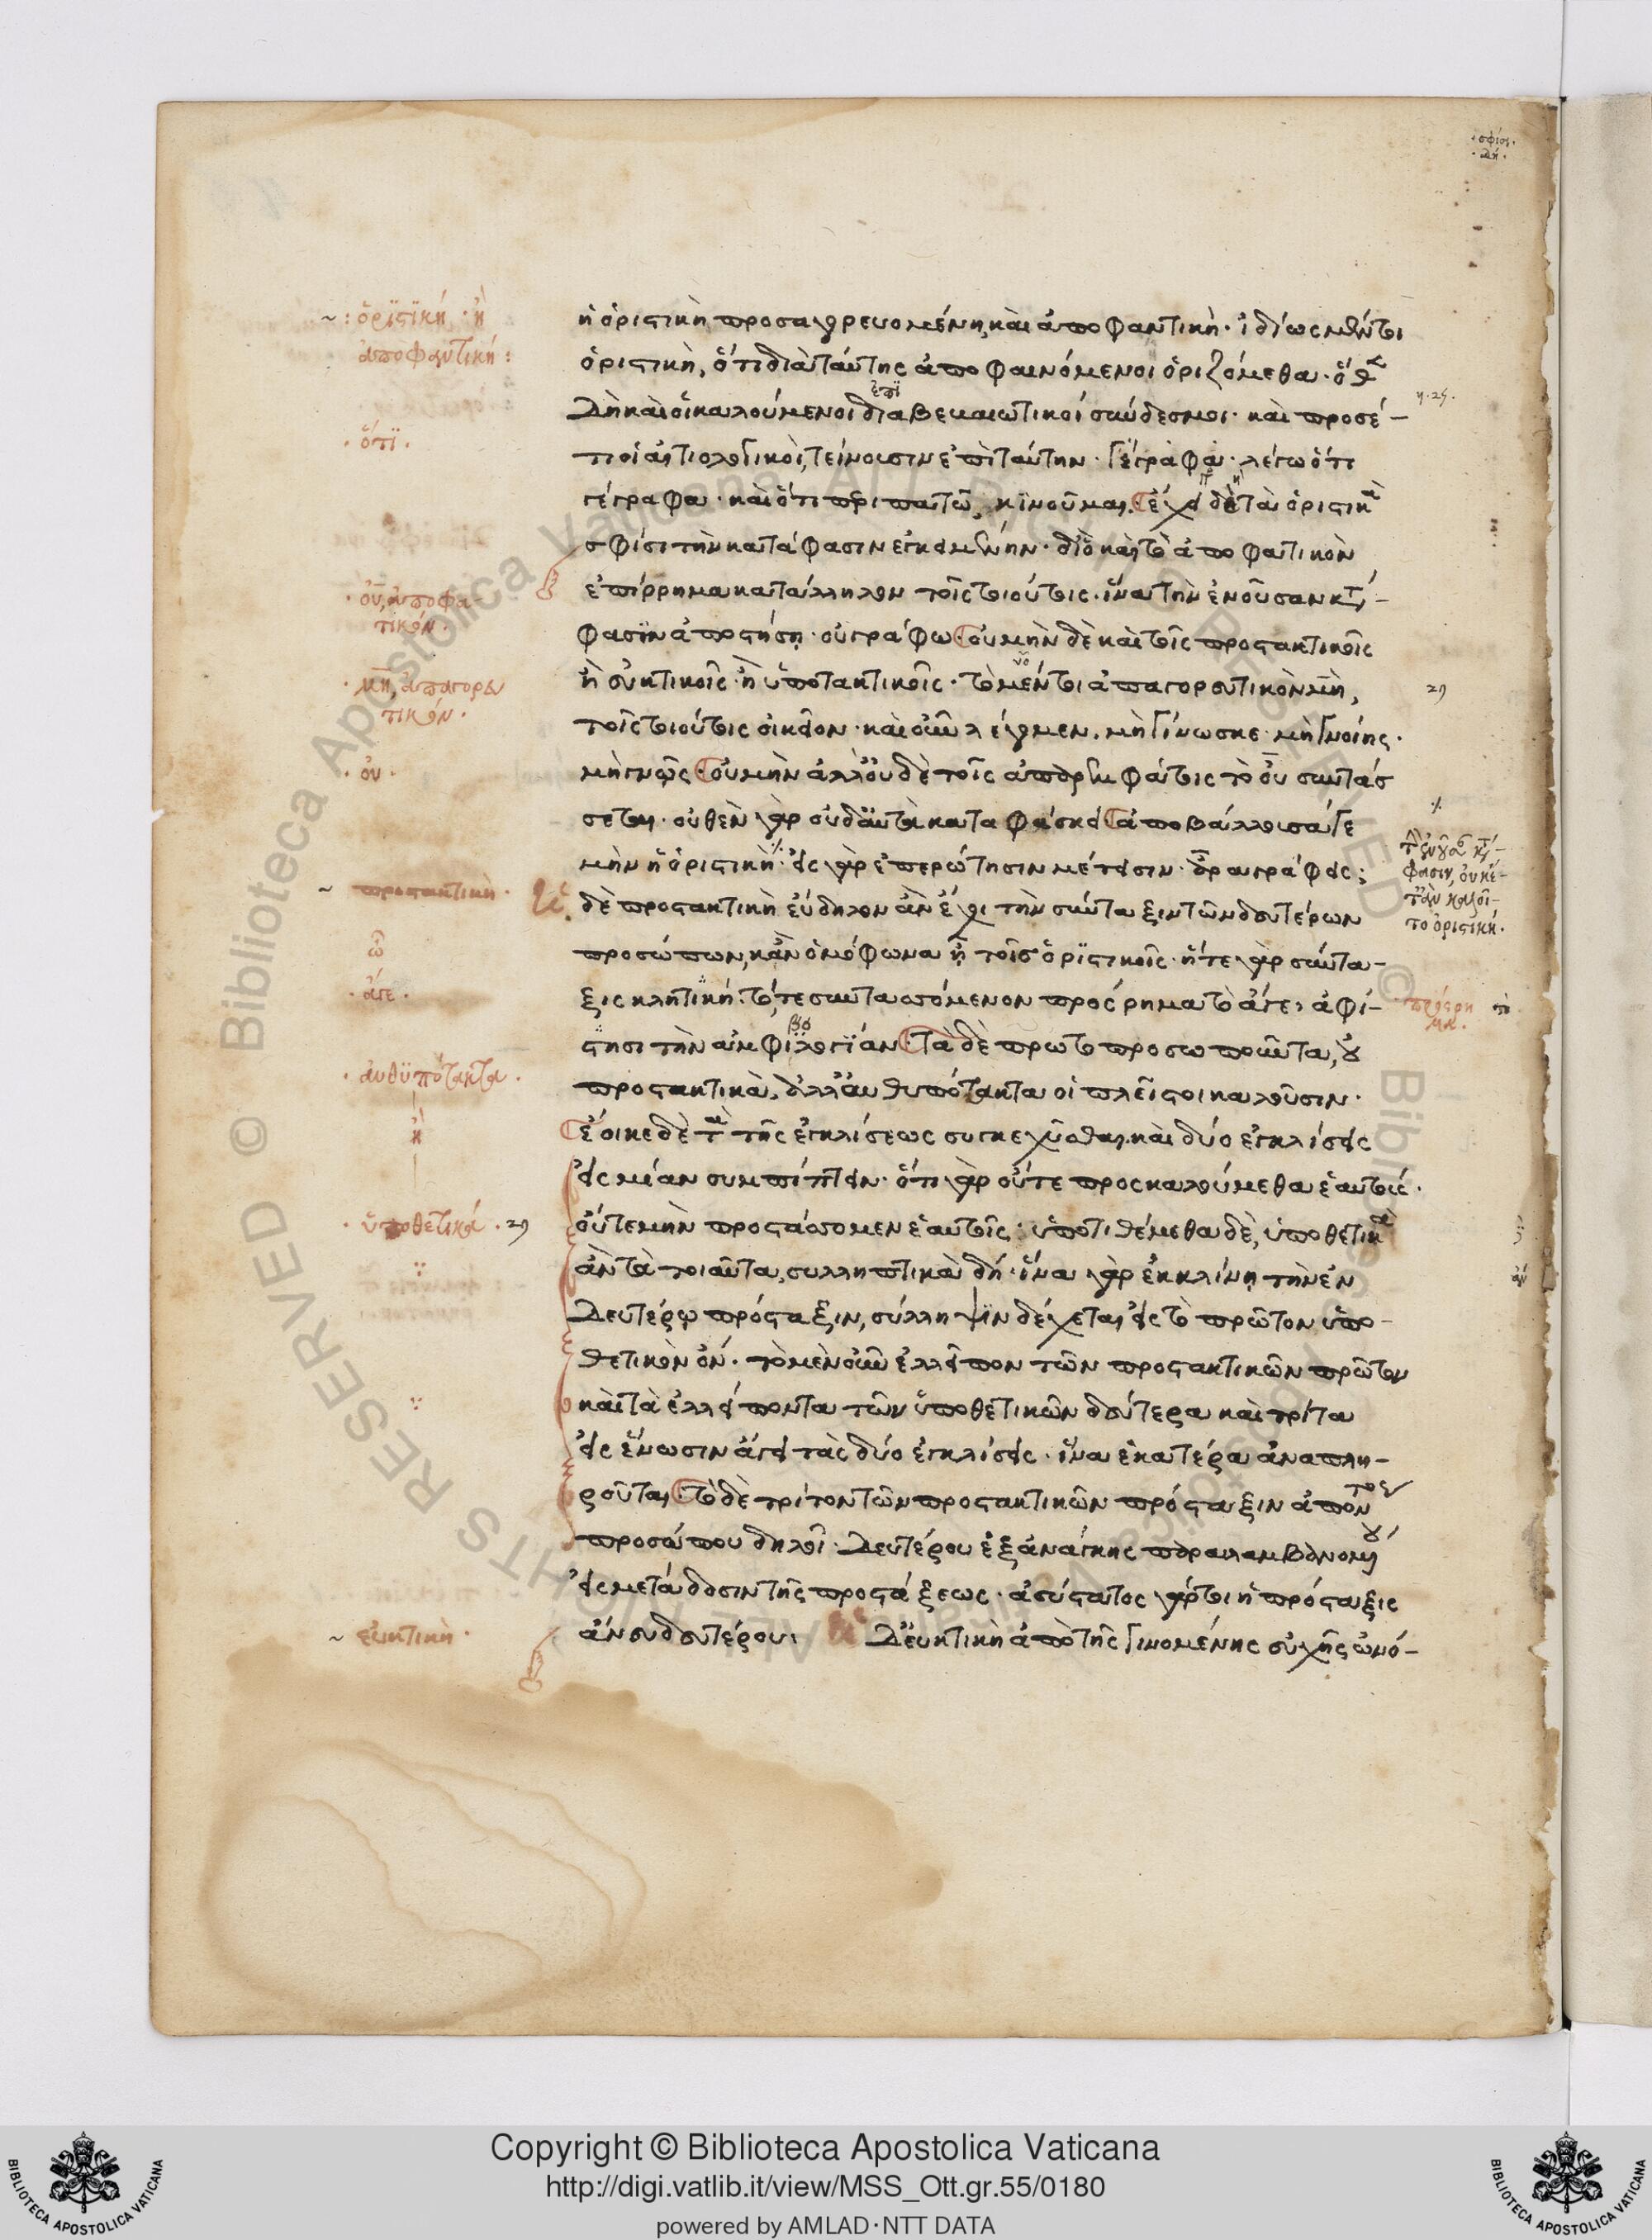 ἡ ὁριστικὴ προσαγορευομένη, καὶ ἀποφαντικὴ · ἰδίως μέντοι
ὁριστικὴ, ὅτι διὰ ταύτης ἀποφαινόμενοι ὁριζόμεθα · ὅθεν
δὴ καὶ οἱ καλούμενοι διαβεβαιωτικοί σύνδεσμοι · καὶ προσέ-
τι οἱ αἰτιολογικοὶ, τείνουσιν ἐπὶ ταύτην · γέγραφα · λέγω ὅτι
γέγραφα · καὶ ὅτι περιπατῶ, κινοῦμαι. ἔχει δὲ τὰ ὁριστικὰ
σφίσι τὴν κατάφασιν ἐγκειμένην · διὸ καὶ τὸ ἀποφατικὸν
ἐπίρρημα κατάλληλον τοῖς τοιούτοις · ἵνα τὴν ἐνοῦσαν κατά-
φασιν ἀποστήσῃ · οὐ γράφω οὐ μὴν δὲ καὶ τοῖς προστακτικοῖς
ἢ εὐκτικοῖς · ἢ ὑποτακτικοῖς · τὸ μέντοι ἀπαγορευτικὸν μὴ,
τοῖς τοιούτοις οἰκεῖον · καὶ οὖν λέγομεν. μὴ γίνωσκε μὴ γνοίης ·
μὴ γνῷς · οὐ μὴν ἀλλ' οὐδὲ τοῖς ἀπαρεμφάτοις τὸ οὐ συντάσ
σεται · οὐθὲν γὰρ οὐδ' αὐτὰ καταφάσκει ἀποβάλλουσά γε
μὴν ἡ ὁριστικὴ · εἰς γὰρ ἐπερώτησιν μέτεισιν · ἆρα γράφεις ;
δὲ προστακτικὴ εὔδηλον ἂν ἔχοι τὴν σύνταξιν τῶν δευτέρων
προσώπων, κἂν ὁμόφωνα ᾖ τοῖς ὁριστικοῖς · ἥ τε γὰρ σύντα-
ξις κλητική · τό τε συντασσόμενον πρὸς ῥῆμα τὸ ἄγε, ἀφί-
στησι τὴν ἀμφιβολίαν Τὰ δὲ πρωτοπροσωποῦντα, οὐ
προστακτικὰ, ἀλλ' ἀνθυπότακτα οἱ πλεῖστοι καλοῦσιν ·
ἔοικε δὲ τὰ τῆς ἐγκλίσεως συγκεχύσθαι καὶ δύο ἐγκλίσεις
εἰς μίαν συμπίπτειν · ὅτι γὰρ οὔτε προσκαλούμεθα ἑαυτοῖς ·
οὔτε μὴν προστάσσομεν ἑαυτοῖς · ὑποτιθέμεθα δὲ, ὑποθετικὰ
ἂν τὰ τοιαῦτα, συλληπτικὰ δή · ἵνα γὰρ ἐκκλίνῃ τὴν ἐν
δευτέρῳ πρόσταξιν, σύλληψιν δέχεται εἰς τὸ πρῶτον ὑπο-
θετικὸν ὄν · τὸ μὲν οὖν ἐλλεῖπον τῶν προστακτικῶν πρῶτον
καὶ τὰ ἐλλείποντα τῶν ὑποθετικῶν δεύτερα καὶ τρίτα
εἰς ἕνωσιν ἄγει τὰς δύο ἐγκλίσεις · ἵνα ἑκατέρα ἀναπλη-
ροῦται · Τὸ δὲ τρίτον τῶν προστακτικῶν πρόσταξιν ἀπόντος
προσώπου δηλοῖ · δευτέρου ἐξ ἀνάγκης παραλαμβανομένου
εἰς μετάδοσιν τῆς προστάξεως · ἀσύστατος γάρ τοι ἡ πρόσταξις
ἄνευ δευτέρου · δ' εὐκτικὴ ἀπὸ τῆς γινομένης εὐχῆς ὠνό-
~ : ὁριστική · ἢ
ἀποφαντική :
· ὅτι ·
· οὐ, ἀποφα-
τικόν ·
· μὴ, ἀπαγορευ
τικόν ·
· οὐ ·
~ προστακτική ·
· ἄγε ·
· ἀνθυπότακτα ·
ἢ
· ὑποθετικά ·
~ εὐκτική ·
φασιν, οὐκέ-
τ' ἂν καλοῖ-
το ὁριστική ·
Copyright © Biblioteca Apostolica Vaticana
http://digi.vatlib.it/view/MSS_Ott.gr.55/0180
powered by AMLAD·NTT DATA